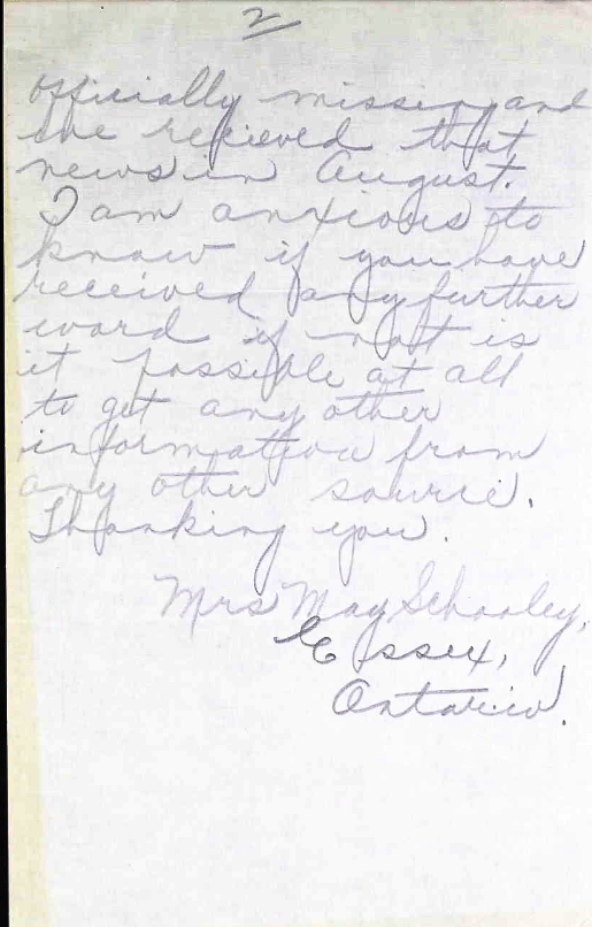 2
officially missing and
she recieved that
news in August.
I am anxious to
know if you have
received any further
word if not is
it possible at all
to get any other
information from
any other source.
Thanking you.
Mrs May Schooley,
Essex,
Ontario.